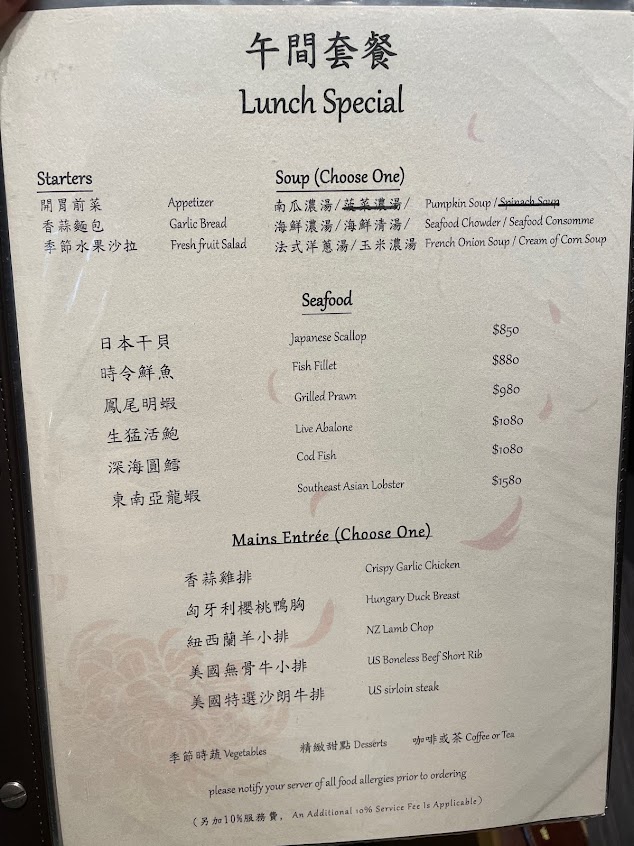 午間套餐
Lunch Special
Starters
開胃前菜 Appetizer
香蒜麵包 Garlic Bread
季節水果沙拉 Fresh fruit Salad
Soup (Choose One)
南瓜濃湯/菠菜濃湯/ Pumpkin Soup / Spinach Soup
海鮮濃湯/海鮮清湯/ Seafood Chowder / Seafood Consomme
法式洋蔥湯/玉米濃湯 French Onion Soup / Cream of Corn Soup
Seafood
日本干貝 Japanese Scallop $850
時令鮮魚 Fish Fillet $880
鳳尾明蝦 Grilled Prawn $980
生猛活鮑 Live Abalone $1080
深海圓鱈 Cod Fish $1080
東南亞龍蝦 Southeast Asian Lobster $1580
Mains Entrée (Choose One)
香蒜雞排 Crispy Garlic Chicken
匈牙利櫻桃鴨胸 Hungary Duck Breast
紐西蘭羊小排 NZ Lamb Chop
美國無骨牛小排 US Boneless Beef Short Rib
美國特選沙朗牛排 US sirloin steak
季節時蔬 Vegetables 精緻甜點 Desserts 咖啡或茶 Coffee or Tea
please notify your server of all food allergies prior to ordering
(另加10%服務費, An Additional 10% Service Fee Is Applicable)